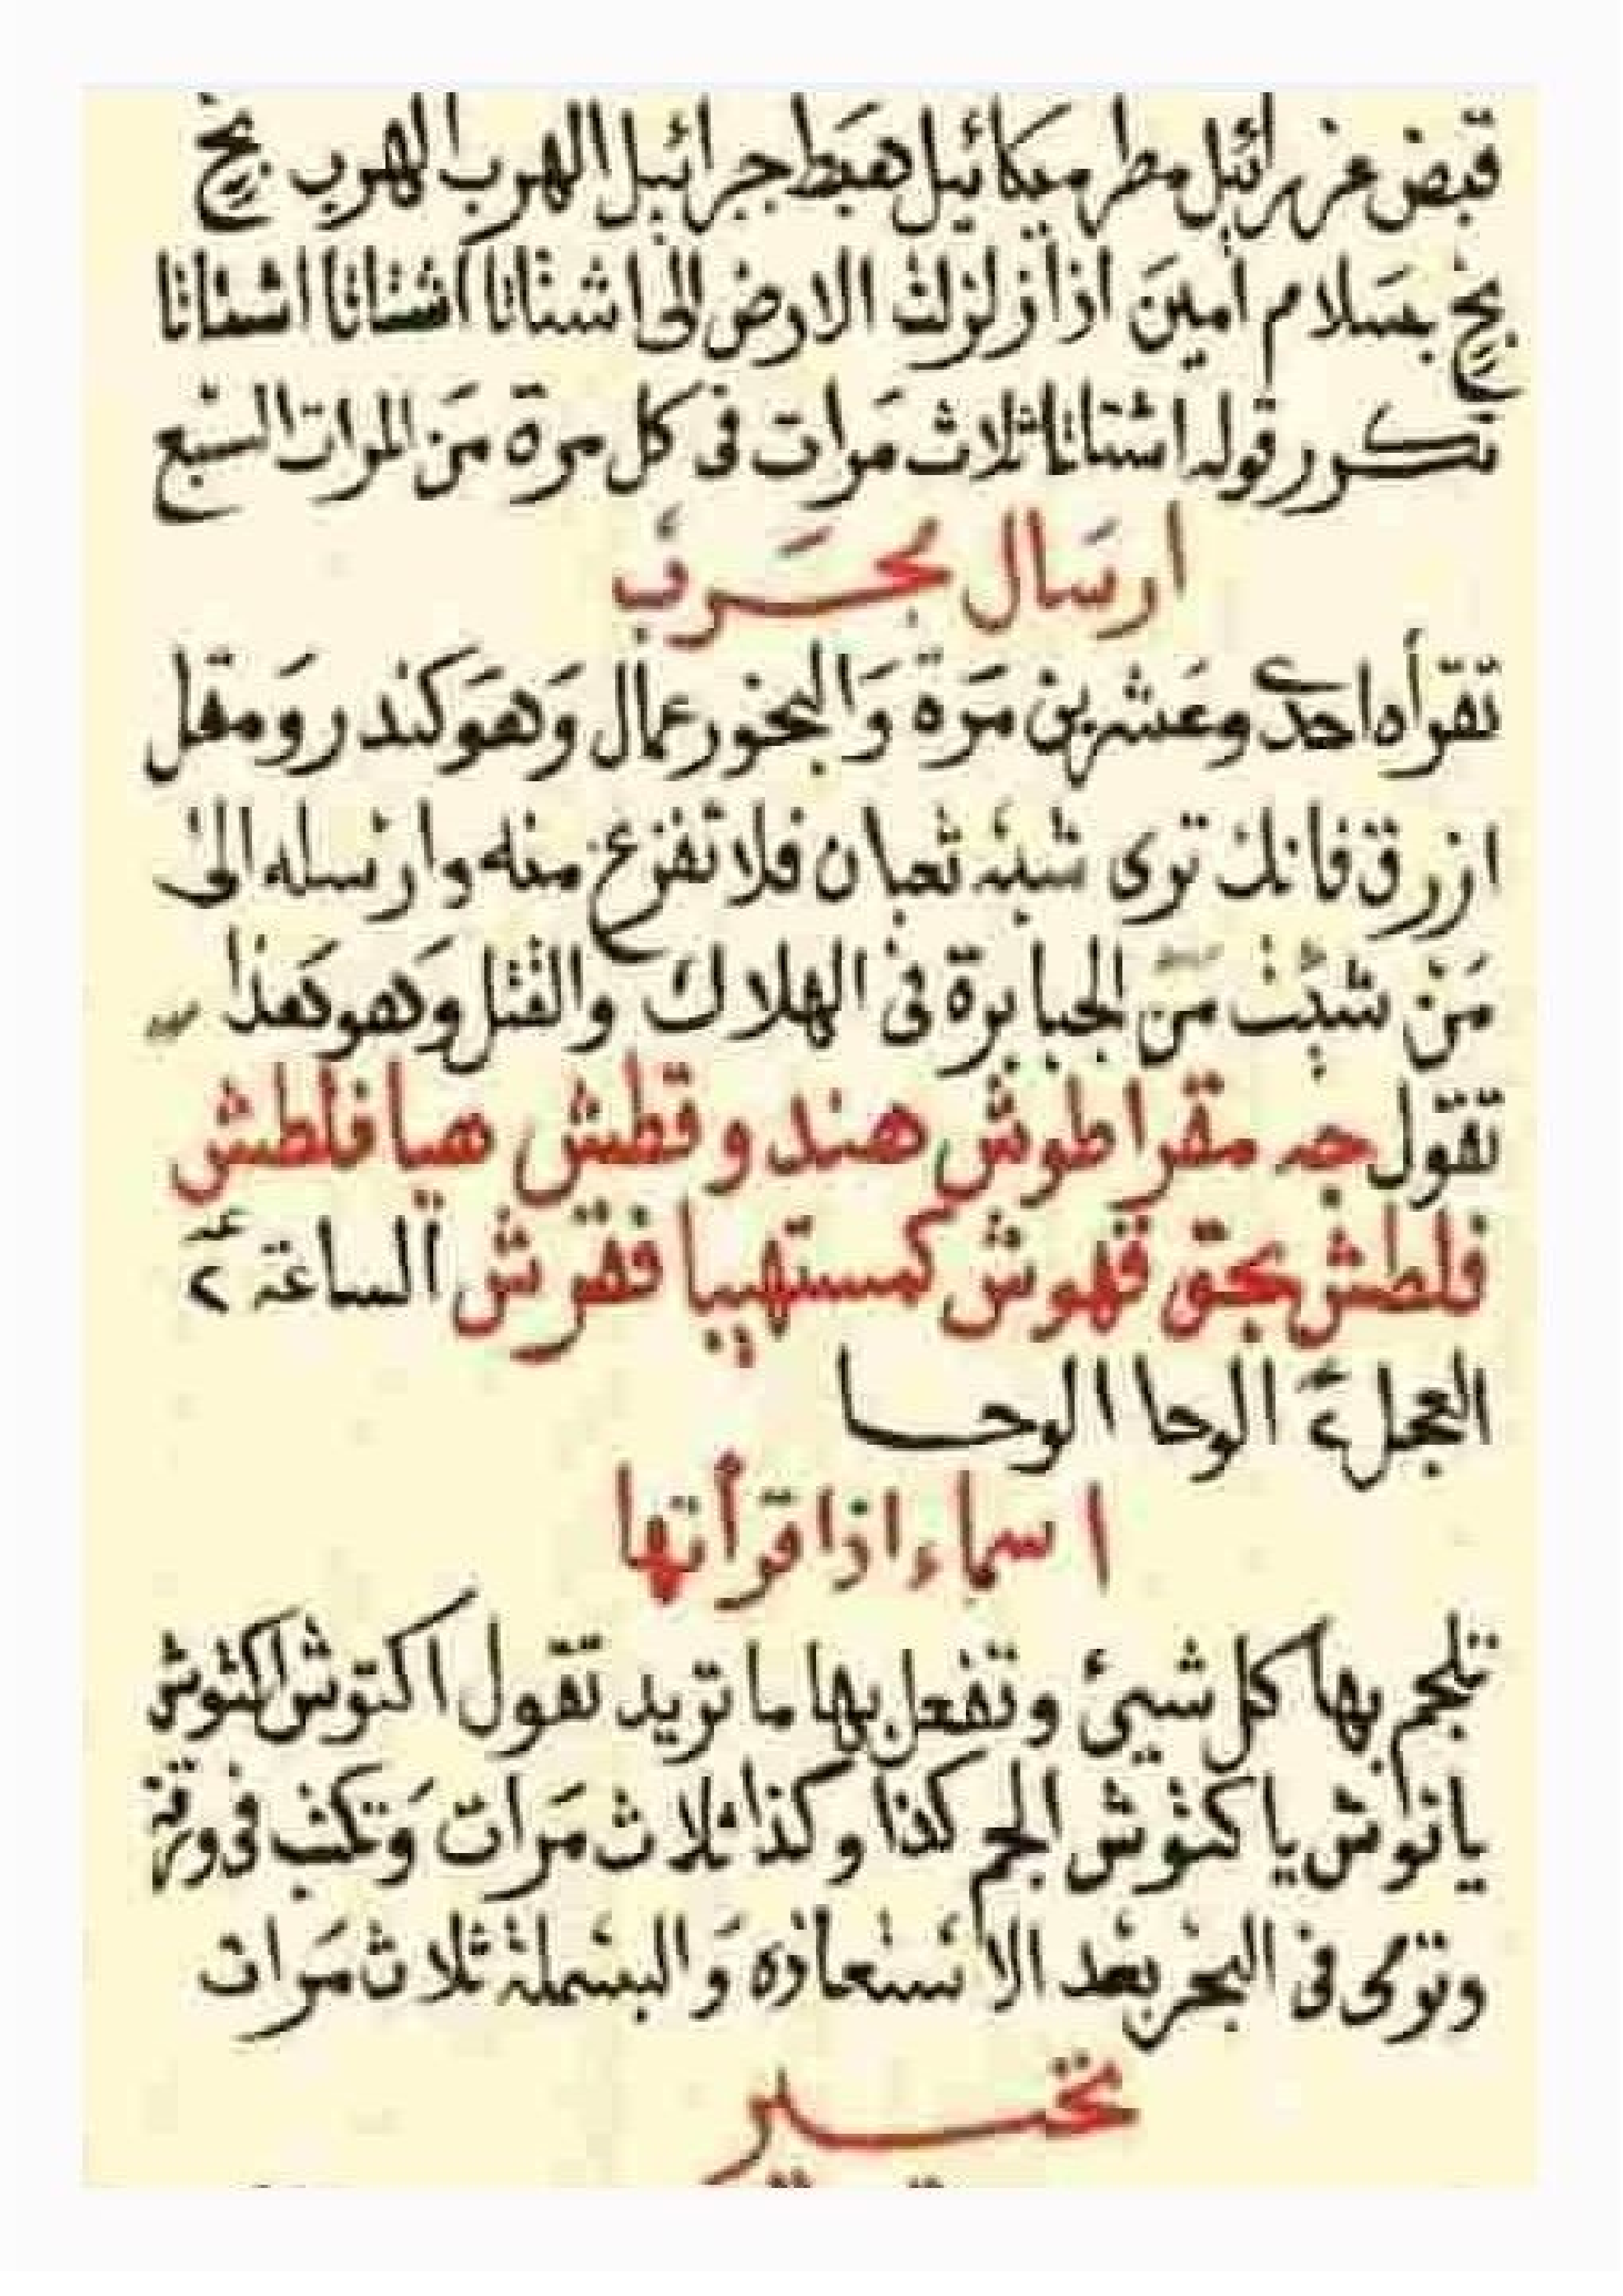 قبض عزرائيل مطر ميكائيل هبط جبرائيل الهرب الهرب بخ
بخ بسلام امين اذا زلزلت الارض الى اشتاتا اشتاتا اشتاتا
تكرر قوله اشتاتا ثلاث مرات فى كل مرة من المرات السبع
ارسال
تقرأه احدى وعشرين مرة والبخور عمال وهو كندر ومقل
ازرق فانك ترى شبه ثعبان فلا تفزع منه وارسله الى
من شئت من الجبابرة فى الهلاك والقتل وهو هذا
تقول مقراطوش هند وقطش هيا فلطش
فلطش بحق فهوش كمستهييا ففرش الساعة ٢
العجل ٢ الوحا الوحا
اسماء اذا قرأتها
تلجم بها كل شيئ وتفعل بها ما تريد تقول اكتوش اكتوش
يا نوش يا كنوش الجم كذا وكذا ثلاث مرات وتكتب فى ورقة
وترمى فى البحر بعد الاستعاذه والبسملة ثلاث مرات